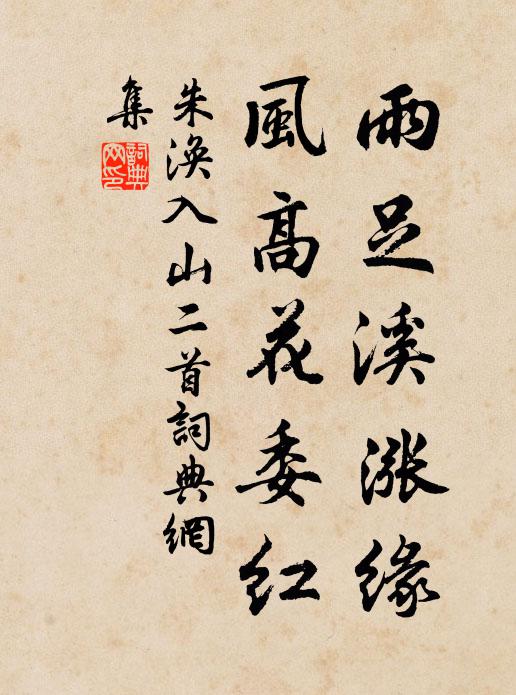 雨足溪漲緣
風高花委紅
朱渙入山二首詞典網
集
詞典網印